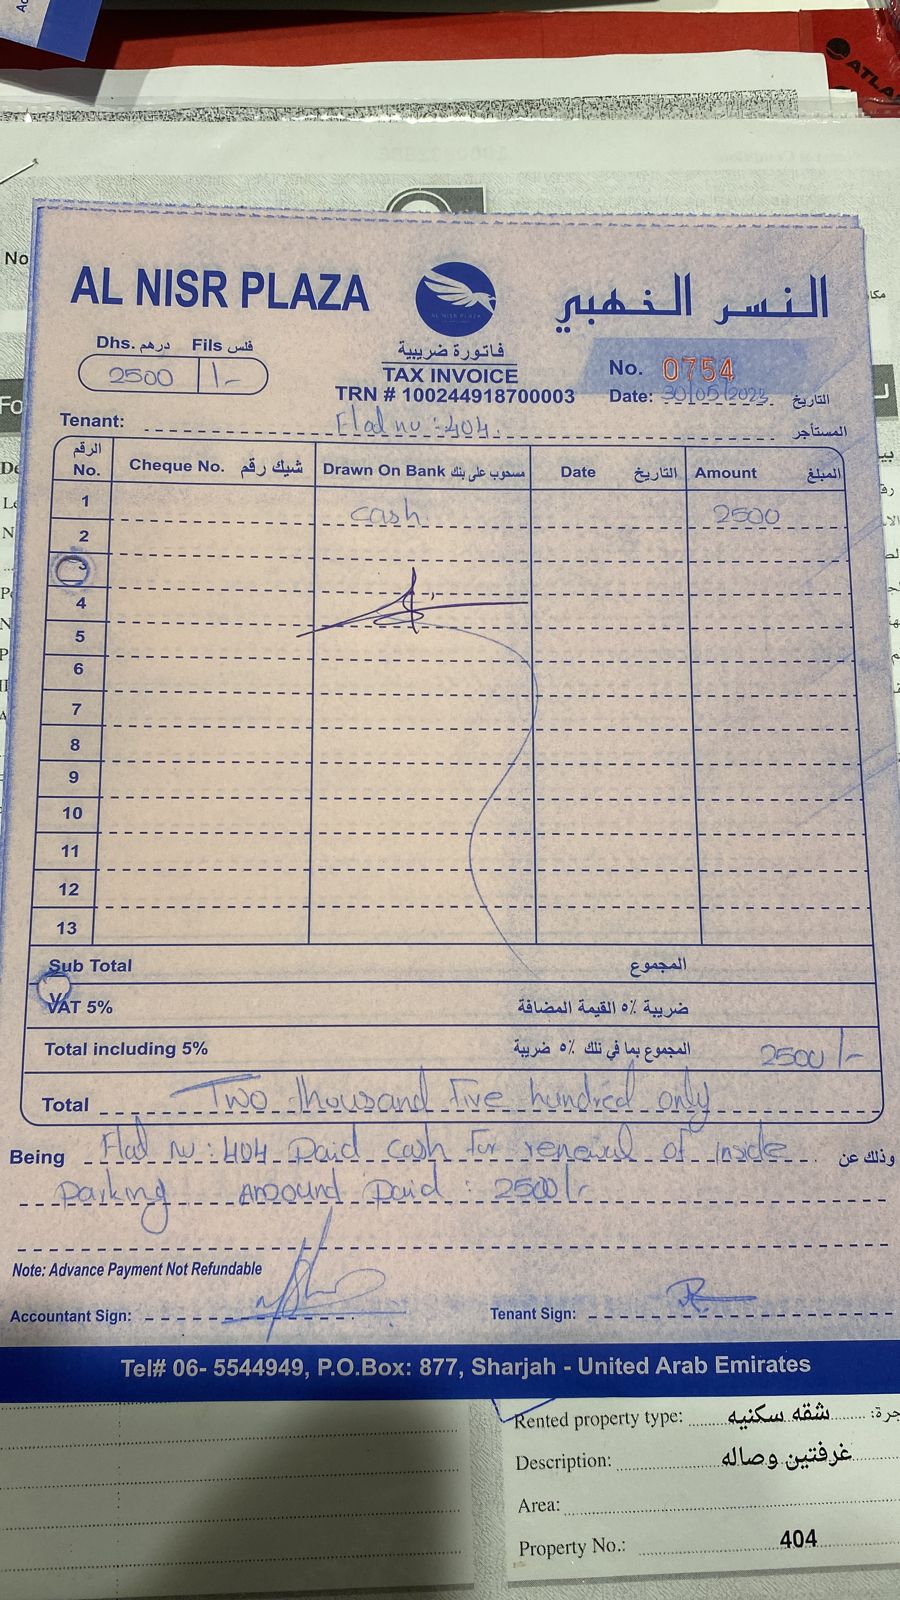 ATLA
No
AL NISR PLAZA
النسر الذهبي
AL NISR PLAZA
Dhs. درهم Fils فلس
2500 /-
فاتورة ضريبية
TAX INVOICE
TRN # 100244918700003
No. 0754
Date: 30/05/2023 التاريخ
Tenant: Flat no :404. المستأجر
الرقم No. Cheque No. شيك رقم Drawn On Bank مسحوب على بنك Date التاريخ Amount المبلغ
1 cash 2500
2
3
4
5
6
7
8
9
10
11
12
13
Sub Total المجموع
VAT 5% ضريبة ٥٪ القيمة المضافة
Total including 5% المجموع بما في ذلك ٥٪ ضريبة 2500/-
Total Two thousand Five hundred only
Being Flat no :404 Paid cash for renewal of Inside وذلك عن
Parking Amount Paid : 2500/-
Note: Advance Payment Not Refundable
Accountant Sign: Tenant Sign:
Tel# 06- 5544949, P.O.Box: 877, Sharjah - United Arab Emirates
Rented property type: شقه سكنيه
Description: غرفتين وصاله
Area:
Property No.: 404